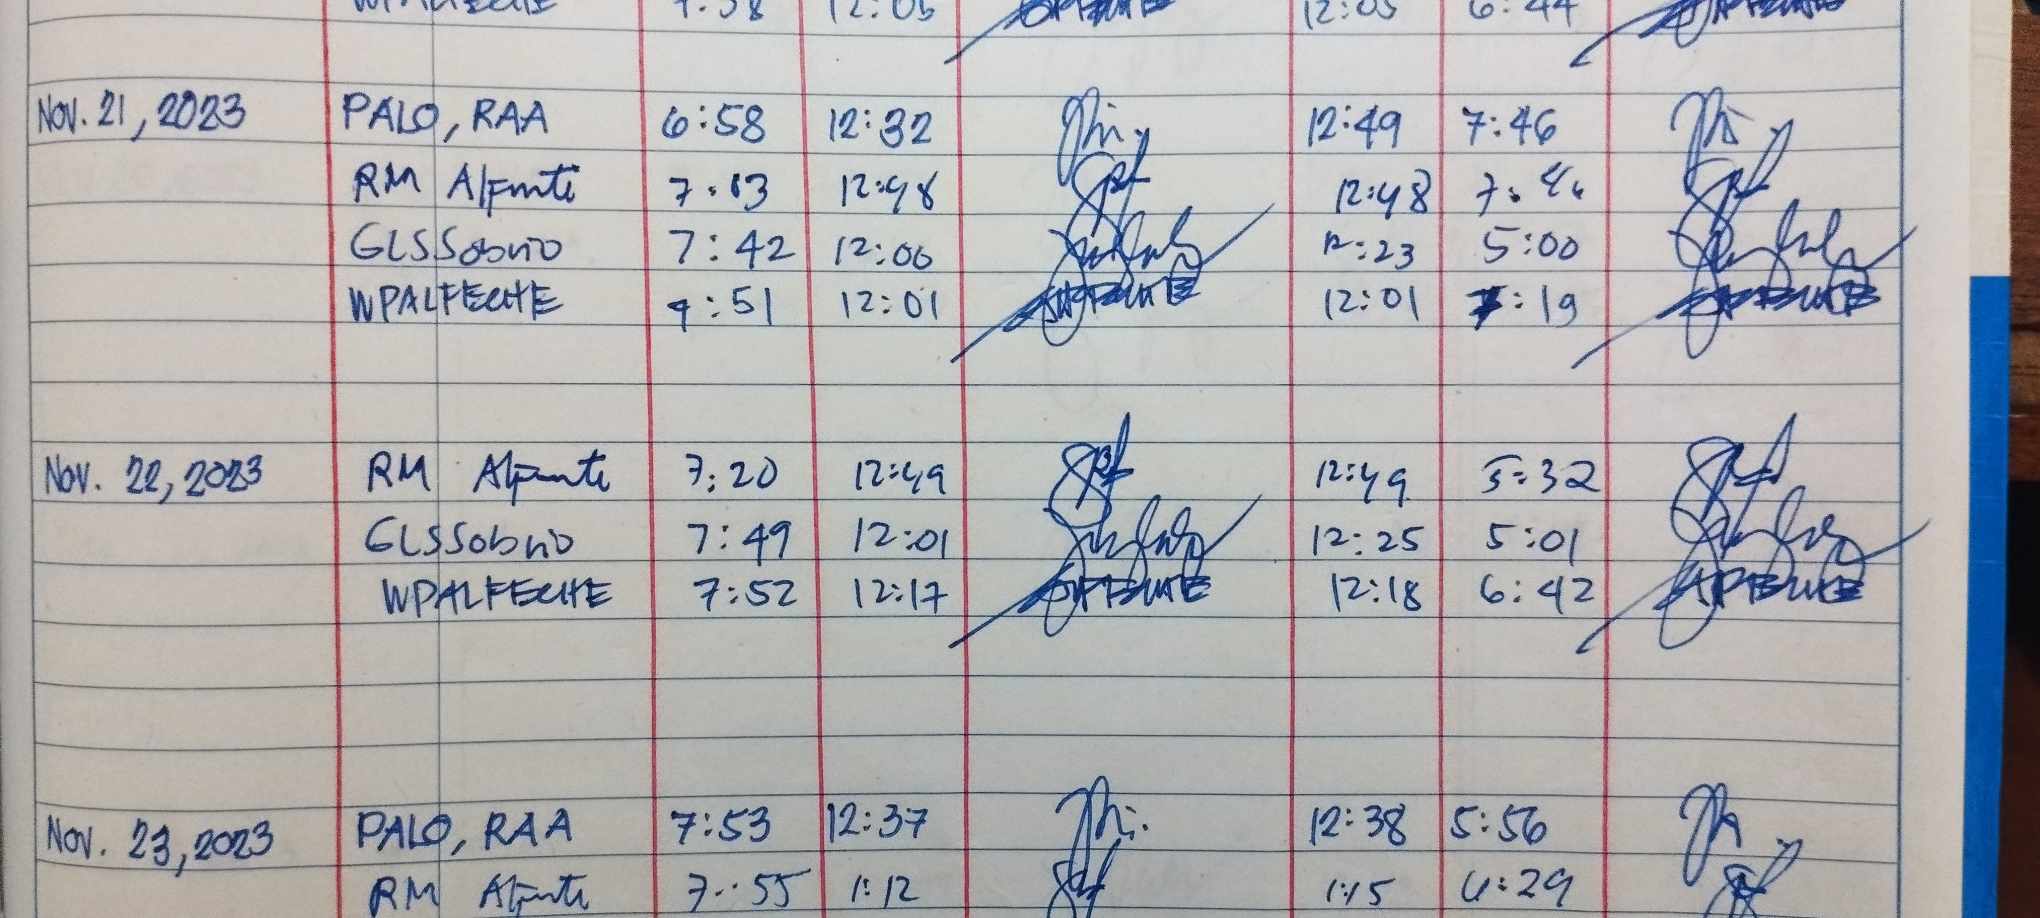 WPALFECHE 7:58 12:05 12:05 6:44
Nov. 21, 2023 PALO, RAA 6:58 12:32 12:49 7:46
RM 7:13 12:48 12:48
GLSSobrio 7:42 12:00 12:23 5:00
WPALFECHE 7:51 12:01 12:01 :19
Nov. 22, 2023 RM 7:20 12:49 12:49 5:32
GLSSobrio 7:49 12:01 12:25 5:01
WPALFECHE 7:52 12:17 12:18 6:42
Nov. 23, 2023 PALO, RAA 7:53 12:37 12:38 5:56
RM 7:55 1:12 1:15 6:29